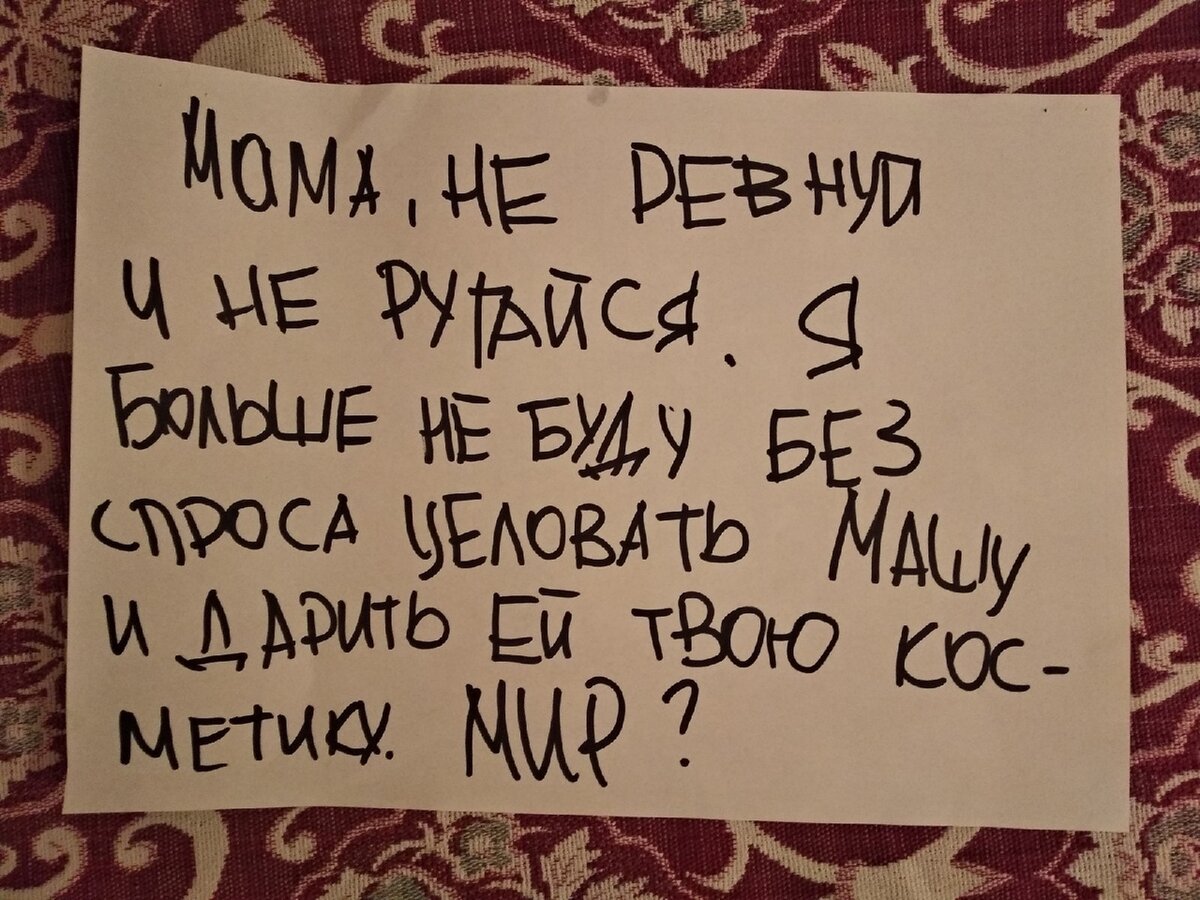 Мама, не ревнуй
и не ругайся. Я
больше не буду без
спроса целовать Машу
и дарить ей твою кос-
метику. Мир?